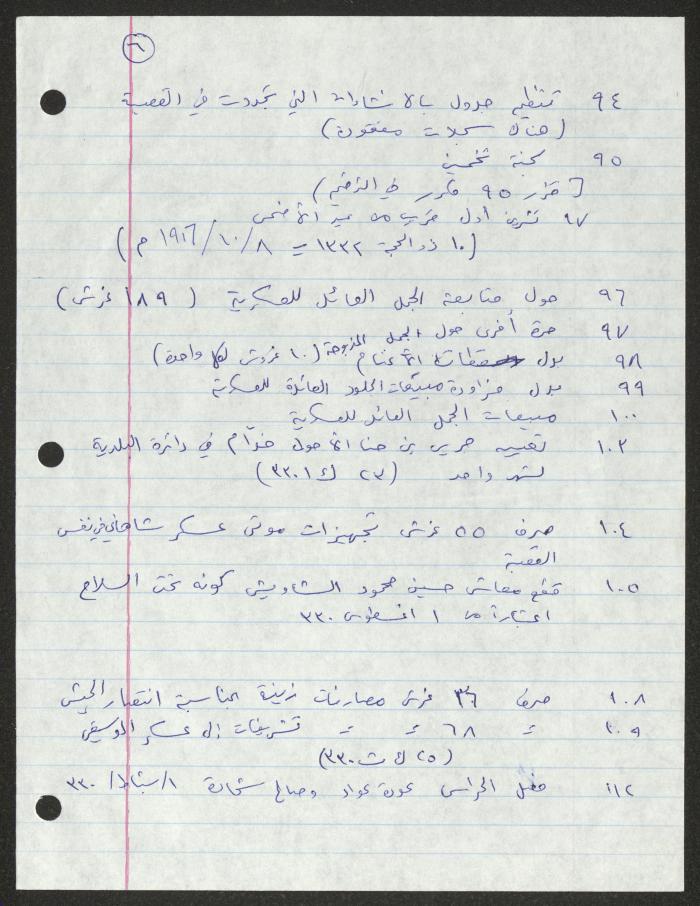 ٦
٩٤ تنظيم جدول بالانشاءات التي تجددت في القصبة
(هناك سجلات مفقودة)
٩٥ لجنة تخمين
[قرار ٩٥ مكرر في الترقيم)
٩٧ تشرين أول عيد الأضحى
(١٠ ذو الحجة ١٣٣٢ = ٨/١٠/١٩١٦ م)
٩٦ حول متابعة الجمل العائل للعسكرية (١٨٩ غرش)
٩٧ مرة أخرى حول الجمل
٩٨ حول الأغنام المذبوحة (١٠ غروش لكل واحدة)
٩٩ حول مزاودة مبيعات الجلود العائدة للعسكرية
١٠٠ مبيعات الجمل العائل للعسكرية
١٠٢ تعيين بن حنا الأحول خدّام في دائرة البلدية
لشهر واحد (٢٣ ك١ ٣٣٠)
١٠٤ صرف ٥٥ غرش تجهيزات موتى عسكر شاهاني في نفس
القصبة
١٠٥ قطع معاش حسين محمود الشاويش كونه تحت السلاح
اعتباراً من ١ اغسطوس ٣٣٠
١٠٨ صرف ٣٦ غرش مصارفات زينة بمناسبة انتصار الجيش
١٠٩ = ٦٨ = = تشريفات إلى عسكر الموسيقى
(٢٥ ك ت ٣٣٠)
١١٢ الحراس عودة عواد وصالح شحادة ١/شباط/٣٣٠